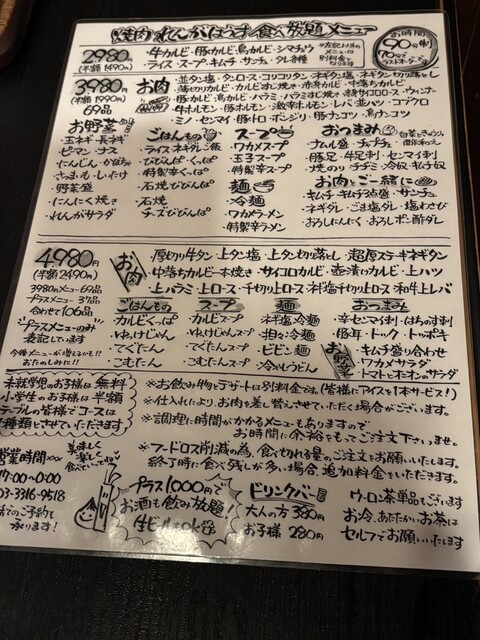 焼肉 れんがはうす 食べ放題メニュー
お時間
90分制
2980円
(半額1490円)
・牛カルビ・豚カルビ・鳥カルビ・シマチョウ
・ライス・スープ・キムチ・サンチュ・タレ各種
※左記以外の
メニューは
別料金と
なります
3980円
(半額1990円)
69品
お肉
・並タン塩・タンロース・コリコリタン・ネギタン塩・ネギタン切り落とし
・豚カルビ・鳥カルビ・バラミ・バラミすじ焼き
・牛ホルモン・豚ホルモン・激辛ホルモン・レバ・並ハツ・コブクロ
・ミノ・センマイ・豚トロ・ボンジリ・豚ナンコツ・鳥ナンコツ
お野菜
・玉ネギ・長ネギ
・ピーマン・ナス
・にんじん・かぼちゃ
・さつまいも・しいたけ
・野菜盛
・にんにく焼き
・れんがサラダ
ごはんもの
・ライス・ネギタレご飯
・びびんば・くっぱ
・特製辛くっぱ
・石焼びびんば
・石焼
チーズびびんば
スープ
・ワカメスープ
・玉子スープ
・特製辛スープ
麺
・冷麺
・ワカメラーメン
・特製辛ラーメン
おつまみ
・ナムル盛・チヂミ
・豚足・牛足刺し・センマイ刺し
・焼のり・チヂミ・冷奴・キムチ奴
お肉とご一緒に
・キムチ・キムチ3点盛・サンチュ
・ネギダレ・ごま塩ダレ・塩わさび
・おろしにんにく・おろしポン酢ダレ
4,980円
(半額2490円)
3980円メニュー69品
プラスメニュー37品
合わせて106品
"プラスメニューのみ"
表記しています
今後メニューが増えるかも!!
おたのしみに!!
お肉
・厚切り牛タン・上タン塩・上タン切り落とし・超厚ステーキネギタン
・中落ちカルビ一本焼き・サイコロカルビ・壺漬けカルビ・上ハツ
・上バラミ・上ロース・千切り上ロース・ネギ塩千切り上ロース・和牛上レバ
ごはんもの
・カルビくっぱ
・ゆっけじゃん
・てぐたん
・こむたん
スープ
・カルビスープ
・ゆっけじゃんスープ
・てぐたんスープ
・こむたんスープ
麺
・ネギ塩冷麺
・担々冷麺
・ビビン麺
・冷やしうどん
おつまみ
・辛センマイ刺・はちのす刺
・豚耳・トック・トッポギ
・キムチ盛り合わせ
お野菜
・ワカメサラダ
・トマトとオニオンのサラダ
未就学児のお子様は無料
小学生のお子様は半額
テーブルの皆様でコースは
1種類とさせていただきます
※お飲み物とデザートは別料金です。(皆様にアイスを1本サービス!)
※仕入れにより、お肉を差し替えさせていただく場合がございます。
※調理に時間がかかるメニューもありますので
お時間に余裕をもってご注文下さいませ。
※フードロス削減の為、食べ切れる量のご注文をお願いいたします。
終了時に食べ残しが多い場合、追加料金をいただきます。
営業時間
17:00~0:00
03-3316-9518
承ります!
美味しく
楽しく
食べて下さいね!
プラス1000円で
お酒も飲み放題!
ドリンクバー
大人の方 380円
お子様 280円
ウーロン茶単品でございます
お冷、あたたかいお茶は
セルフでお願いいたします